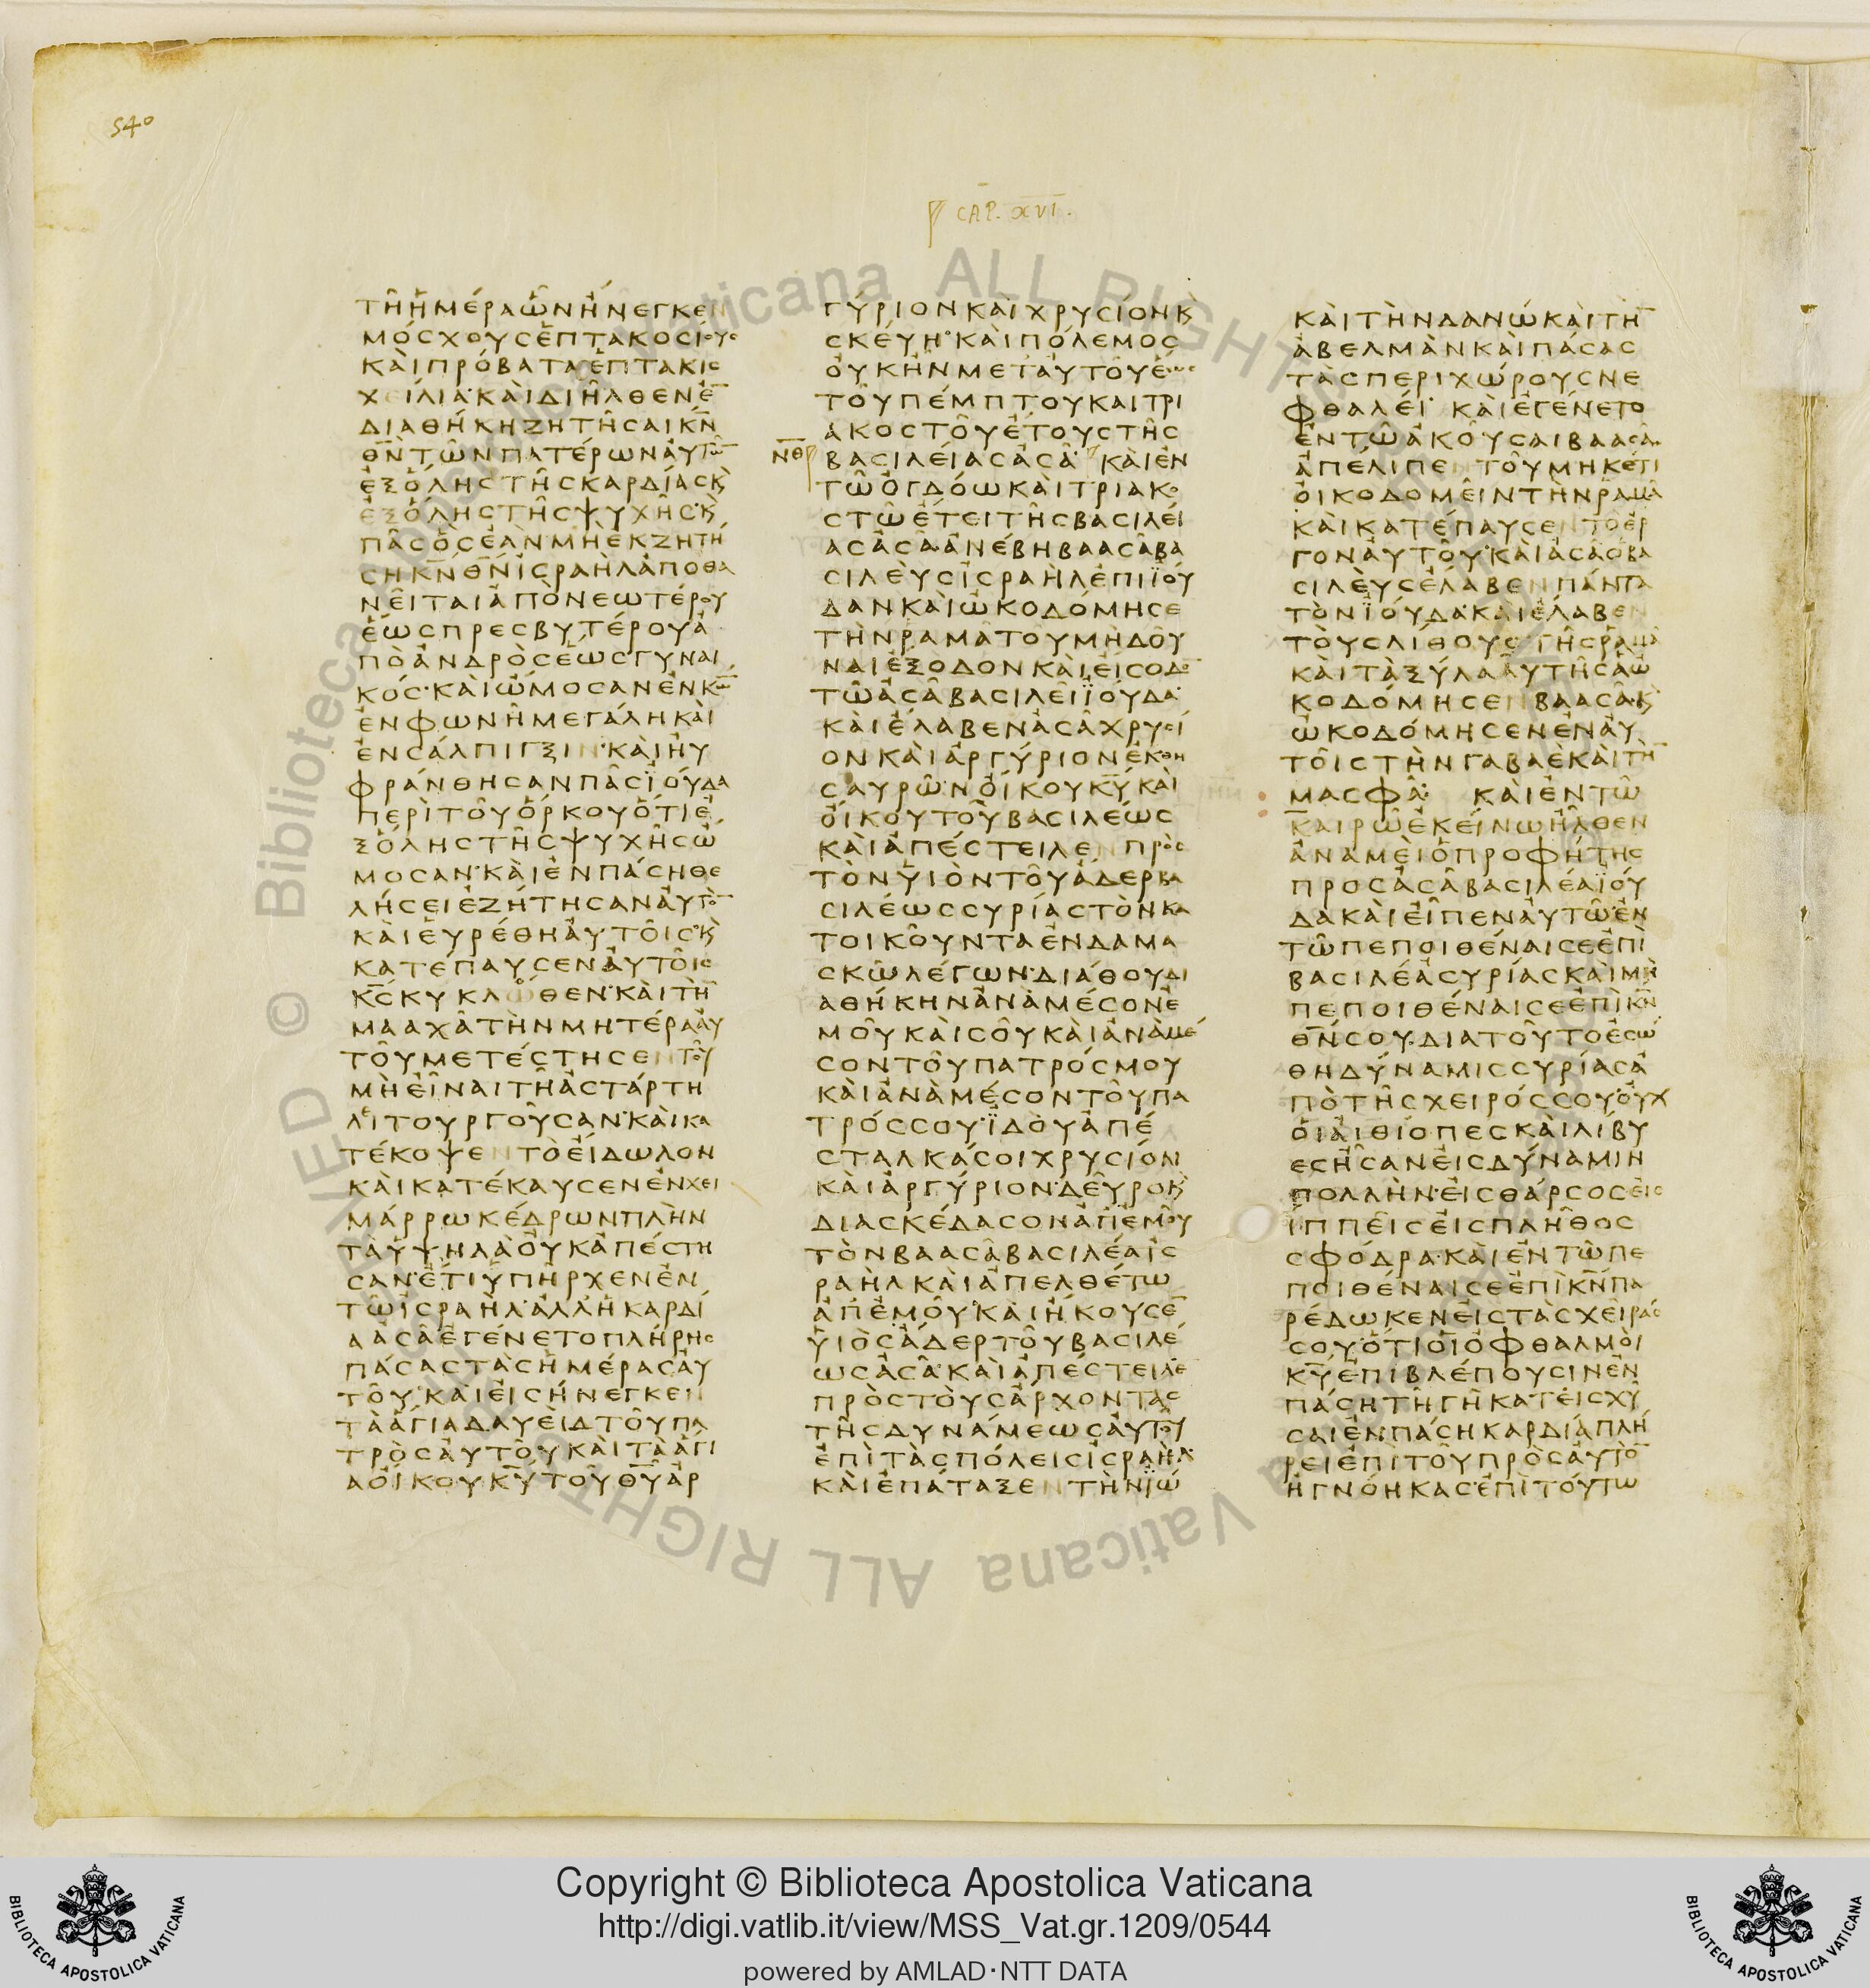 540
CAP. XVI.
ΤΗΗΜΕΡΑΩΝΗΝΕΓΚΕΝ
ΜΟϹΧΟΥϹΕΠΤΑΚΟϹΙΟΥϹ
ΚΑΙΠΡΟΒΑΤΑΕΠΤΑΚΙϹ
ΧΕΙΛΙΑ·ΚΑΙΔΙΗΛΘΕΝΕ̅
ΔΙΑΘΗΚΗΖΗΤΗϹΑΙΚ̅Ν̅
Θ̅Ν̅ΤΩΝΠΑΤΕΡΩΝΑΥΤΩ̅
ΕΞΟΛΗϹΤΗϹΚΑΡΔΙΑϹΚ
ΕΞΟΛΗϹΤΗϹΨΥΧΗϹ·Κ
ΠΑϹΟϹΕΑΝΜΗΕΚΖΗΤΗ
ϹΗΚ̅Ν̅Θ̅Ν̅ΙϹΡΑΗΛΑΠΟΘΑ
ΝΕΙΤΑΙΑΠΟΝΕΩΤΕΡΟΥ
ΕΩϹΠΡΕϹΒΥΤΕΡΟΥΑ
ΠΟΑΝΔΡΟϹΕΩϹΓΥΝΑΙ
ΚΟϹ·ΚΑΙΩΜΟϹΑΝΕΝΚ̅Ω̅
ΕΝΦΩΝΗΜΕΓΑΛΗΚΑΙ
ΕΝϹΑΛΠΙΓΞΙΝ·ΚΑΙΗΥ
ΦΡΑΝΘΗϹΑΝΠΑϹΪΟΥΔΑ
ΠΕΡΙΤΟΥΟΡΚΟΥΟΤΙΕ
ΞΟΛΗϹΤΗϹΨΥΧΗϹΩ
ΜΟϹΑΝ·ΚΑΙΕΝΠΑϹΗΘΕ
ΛΗϹΕΙΕΖΗΤΗϹΑΝΑΥΤΟ̅
ΚΑΙΕΥΡΕΘΗΑΥΤΟΙϹ·Κ
ΚΑΤΕΠΑΥϹΕΝΑΥΤΟΙϹ
Κ̅Ϲ̅ΚΥΚΛΩΘΕΝ·ΚΑΙΤΗ̅
ΜΑΑΧΑΤΗΝΜΗΤΕΡΑΑΥ
ΤΟΥΜΕΤΕϹΤΗϹΕΝΤΟΥ
ΜΗΕΙΝΑΙΤΗΑϹΤΑΡΤΗ
ΛΕΙΤΟΥΡΓΟΥϹΑΝ·ΚΑΙΚΑ
ΤΕΚΟΨΕΝΤΟΕΙΔΩΛΟΝ
ΚΑΙΚΑΤΕΚΑΥϹΕΝΕΝΧΕΙ
ΜΑΡΡΩΚΕΔΡΩΝΠΛΗΝ
ΤΑΥΨΗΛΑΟΥΚΑΠΕϹΤΗ
ϹΑΝ·ΕΤΙΥΠΗΡΧΕΝΕΝ
ΤΩΙϹΡΑΗΛ·ΑΛΛΗΚΑΡΔΙ
ΑΑϹΑΕΓΕΝΕΤΟΠΛΗΡΗϹ
ΠΑϹΑϹΤΑϹΗΜΕΡΑϹΑΥ
ΤΟΥ·ΚΑΙΕΙϹΗΝΕΓΚΕΝ
ΤΑΑΓΙΑΔΑΥΕΙΔΤΟΥΠΑ
ΤΡΟϹΑΥΤΟΥΚΑΙΤΑΑΓΙ
ΑΟΙΚΟΥΚ̅Υ̅ΤΟΥΘ̅Υ̅ΑΡ
ΓΥΡΙΟΝΚΑΙΧΡΥϹΙΟΝΚ
ϹΚΕΥΗ·ΚΑΙΠΟΛΕΜΟϹ
ΟΥΚΗΝΜΕΤΑΥΤΟΥΕΩϹ
ΤΟΥΠΕΜΠΤΟΥΚΑΙΤΡΙ
ΑΚΟϹΤΟΥΕΤΟΥϹΤΗϹ
Ν̅Θ̅ ΒΑϹΙΛΕΙΑϹΑϹΑ· ΚΑΙΕΝ
ΤΩΟΓΔΟΩΚΑΙΤΡΙΑΚΟ
ϹΤΩΕΤΕΙΤΗϹΒΑϹΙΛΕΙ
ΑϹΑϹΑ·ΑΝΕΒΗΒΑΑϹΑΒΑ
ϹΙΛΕΥϹΙϹΡΑΗΛΕΠΙΪΟΥ
ΔΑΝΚΑΙΩΚΟΔΟΜΗϹΕ
ΤΗΝΡΑΜΑΤΟΥΜΗΔΟΥ
ΝΑΙΕΞΟΔΟΝΚΑΙΕΙϹΟΔΟ̅
ΤΩΑϹΑΒΑϹΙΛΕΙΪΟΥΔΑ·
ΚΑΙΕΛΑΒΕΝΑϹΑΧΡΥϹΙ
ΟΝΚΑΙΑΡΓΥΡΙΟΝΕΚΘΗ
ϹΑΥΡΩΝΟΙΚΟΥΚ̅Υ̅ΚΑΙ
ΟΙΚΟΥΤΟΥΒΑϹΙΛΕΩϹ
ΚΑΙΑΠΕϹΤΕΙΛΕΝΠΡΟϹ
ΤΟΝΥΙΟΝΤΟΥΑΔΕΡΒΑ
ϹΙΛΕΩϹϹΥΡΙΑϹΤΟΝΚΑ
ΤΟΙΚΟΥΝΤΑΕΝΔΑΜΑ
ϹΚΩΛΕΓΩΝ·ΔΙΑΘΟΥΔΙ
ΑΘΗΚΗΝΑΝΑΜΕϹΟΝΕ
ΜΟΥΚΑΙϹΟΥΚΑΙΑΝΑΜΕ
ϹΟΝΤΟΥΠΑΤΡΟϹΜΟΥ
ΚΑΙΑΝΑΜΕϹΟΝΤΟΥΠΑ
ΤΡΟϹϹΟΥ·ΪΔΟΥΑΠΕ
ϹΤΑΛΚΑϹΟΙΧΡΥϹΙΟΝ
ΚΑΙΑΡΓΥΡΙΟΝ·ΔΕΥΡΟΚ
ΔΙΑϹΚΕΔΑϹΟΝΑΠΕΜΟΥ
ΤΟΝΒΑΑϹΑΒΑϹΙΛΕΑΙϹ
ΡΑΗΛΚΑΙΑΠΕΛΘΕΤΩ
ΑΠΕΜΟΥ·ΚΑΙΗΚΟΥϹΕ̅
ΥΙΟϹΑΔΕΡΤΟΥΒΑϹΙΛΕ
ΩϹΑϹΑ·ΚΑΙΑΠΕϹΤΕΙΛΕ
ΠΡΟϹΤΟΥϹΑΡΧΟΝΤΑϹ
ΤΗϹΔΥΝΑΜΕΩϹΑΥΤΟΥ
ΕΠΙΤΑϹΠΟΛΕΙϹΙϹΡΑΗΛ·
ΚΑΙΕΠΑΤΑΞΕΝΤΗΝΪΩ
ΚΑΙΤΗΝΔΑΝΩΚΑΙΤΗ̅
ΑΒΕΛΜΑΝΚΑΙΠΑϹΑϹ
ΤΑϹΠΕΡΙΧΩΡΟΥϹΝΕ
ΦΘΑΛΕΙ· ΚΑΙΕΓΕΝΕΤΟ
ΕΝΤΩΑΚΟΥϹΑΙΒΑΑϹΑ·
ΑΠΕΛΙΠΕΝΤΟΥΜΗΚΕΤΙ
ΟΙΚΟΔΟΜΕΙΝΤΗΝΡΑΜΑ
ΚΑΙΚΑΤΕΠΑΥϹΕΝΤΟΕΡ
ΓΟΝΑΥΤΟΥ·ΚΑΙΑϹΑΟΒΑ
ϹΙΛΕΥϹΕΛΑΒΕΝΠΑΝΤΑ
ΤΟΝΪΟΥΔΑ·ΚΑΙΕΛΑΒΕΝ
ΤΟΥϹΛΙΘΟΥϹΤΗϹΡΑΜΑ
ΚΑΙΤΑΞΥΛΑΑΥΤΗϹΑΩ
ΚΟΔΟΜΗϹΕΝΒΑΑϹΑ·Κ
ΩΚΟΔΟΜΗϹΕΝΕΝΑΥ
ΤΟΙϹΤΗΝΓΑΒΑΕΚΑΙΤΗ̅
ΜΑϹΦΑ· ΚΑΙΕΝΤΩ
ΚΑΙΡΩΕΚΕΙΝΩΗΛΘΕΝ
ΑΝΑΜΕΙΟΠΡΟΦΗΤΗϹ
ΠΡΟϹΑϹΑΒΑϹΙΛΕΑΪΟΥ
ΔΑΚΑΙΕΙΠΕΝΑΥΤΩ·ΕΝ
ΤΩΠΕΠΟΙΘΕΝΑΙϹΕΕΠΙ
ΒΑϹΙΛΕΑϹΥΡΙΑϹΚΑΙΜΗ
ΠΕΠΟΙΘΕΝΑΙϹΕΕΠΙΚ̅Ν̅
Θ̅Ν̅ϹΟΥ·ΔΙΑΤΟΥΤΟΕϹΩ
ΘΗΔΥΝΑΜΙϹϹΥΡΙΑϹΑ
ΠΟΤΗϹΧΕΙΡΟϹϹΟΥ·ΟΥΧ
ΟΙΑΙΘΙΟΠΕϹΚΑΙΛΙΒΥ
ΕϹΗϹΑΝΕΙϹΔΥΝΑΜΙΝ
ΠΟΛΛΗΝ·ΕΙϹΘΑΡϹΟϹΕΙϹ
ΙΠΠΕΙϹΕΙϹΠΛΗΘΟϹ
ϹΦΟΔΡΑ·ΚΑΙΕΝΤΩΠΕ
ΠΟΙΘΕΝΑΙϹΕΕΠΙΚ̅Ν̅ΠΑ
ΡΕΔΩΚΕΝΕΙϹΤΑϹΧΕΙΡΑϹ
ϹΟΥ·ΟΤΙΟΙΟΦΘΑΛΜΟΙ
Κ̅Υ̅ΕΠΙΒΛΕΠΟΥϹΙΝΕΝ
ΠΑϹΗΤΗΓΗΚΑΤΕΙϹΧΥ
ϹΑΙΕΝΠΑϹΗΚΑΡΔΙΑΠΛΗ
ΡΕΙΕΠΙΤΟΥΠΡΟϹΑΥΤΟ̅
ΗΓΝΟΗΚΑϹ·ΕΠΙΤΟΥΤΩ
Copyright © Biblioteca Apostolica Vaticana
http://digi.vatlib.it/view/MSS_Vat.gr.1209/0544
powered by AMLAD·NTT DATA
BIBLIOTECA APOSTOLICA VATICANA
BIBLIOTECA APOSTOLICA VATICANA